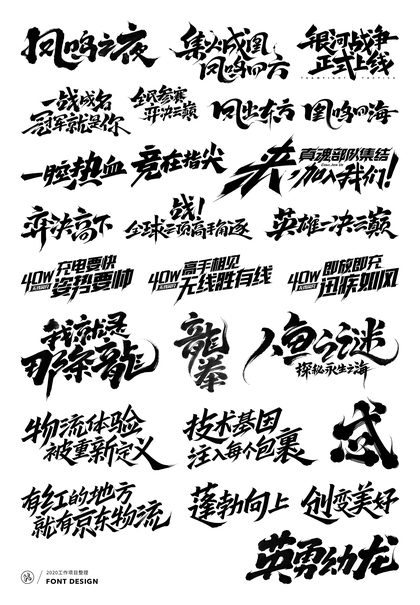 凤鸣之夜
集火成凰
凤鸣四方
银河战争
正式上线
一战成名
冠军就是你
全民参赛
弈决之巅
凤出东方
凰鸣四海
一腔热血
竞在指尖
来,
真魂部队集结
加入我们!
弈决高下
战!
全球三顶高手角逐
英雄一决之巅
40W
充电要快
姿势要帅
40W
高手相见
无线胜有线
40W
即放即充
迅疾如风
我就是
那条龍
龍拳
人鱼之谜
探秘永生之海
物流体验
被重新定义
技术基因
注入每个包裹
武
有红的地方
就有京东物流
蓬勃向上
创变美好
英勇幼龙
2020工作项目整理
FONT DESIGN